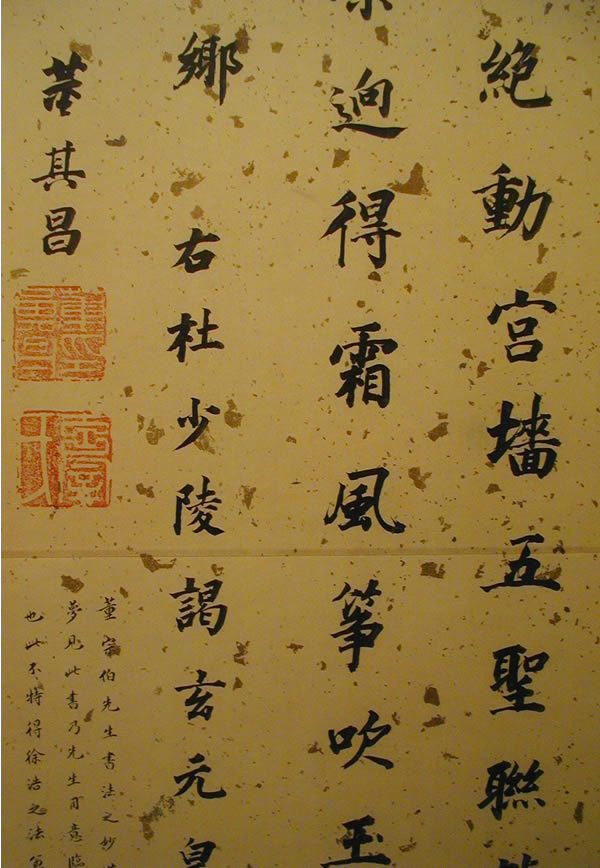 絕動宮墻五聖聯
迥得霜風筝吹玉
鄉
右杜少陵謁玄元皇
董其昌
董宗伯先生書法之妙
夢見此書乃先生用意臨
也此不特得徐浩之法